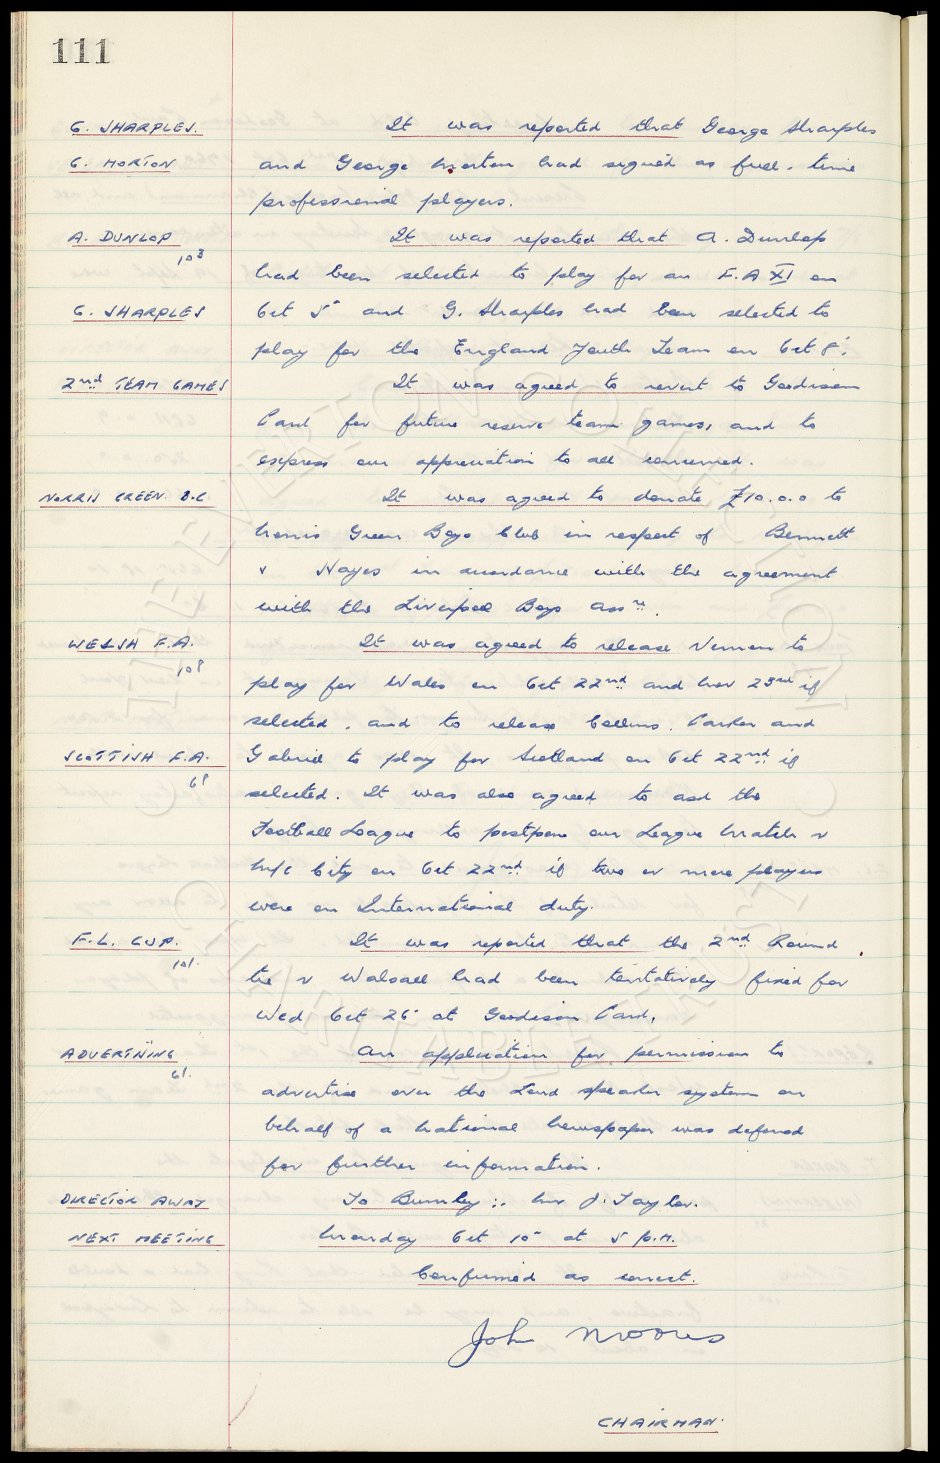 111
G. SHARPLES. It was reported that George Sharples
G. MORTON and George Morton had signed as full-time
professional players.
A. DUNLOP It was reported that A. Dunlop
103 had been selected to play for an F.A XI on
G. SHARPLES Oct 5th and G. Sharples had been selected to
play for the England Youth Team on Oct 8th.
2nd TEAM GAMES It was agreed to revert to Goodison
Park for future reserve team games, and to
express our appreciation to all concerned.
NORRIS GREEN B.C It was agreed to donate £10.0.0 to
Norris Green Boys Club in respect of Bennett
& Hayes in accordance with the agreement
with the Liverpool Boys Assn.
WELSH F.A. It was agreed to release Vernon to
108 play for Wales on Oct 22nd and Nov 23rd if
selected, and to release Collins, Parker and
SCOTTISH F.A. Gabriel to play for Scotland on Oct 22nd if
61 selected. It was also agreed to ask the
Football League to postpone our League Match v
M/c City on Oct 22nd if two or more players
were on International duty.
F.L. CUP. It was reported that the 2nd Round
101. tie v Walsall had been tentatively fixed for
Wed Oct 26th at Goodison Park.
ADVERTISING An application for permission to
61. advertise over the Loud speaker system on
behalf of a National Newspaper was deferred
for further information.
DIRECTOR AWAY To Burnley:- Mr J. Taylor.
NEXT MEETING Monday Oct 10th at 5 p.m.
Confirmed as correct.
John Moores
CHAIRMAN.
THE EVERTON COLLECTION
CHARITABLE TRUST